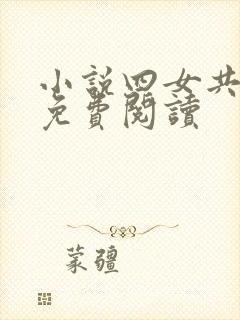 小說四女共
免費閱讀
蒙疆